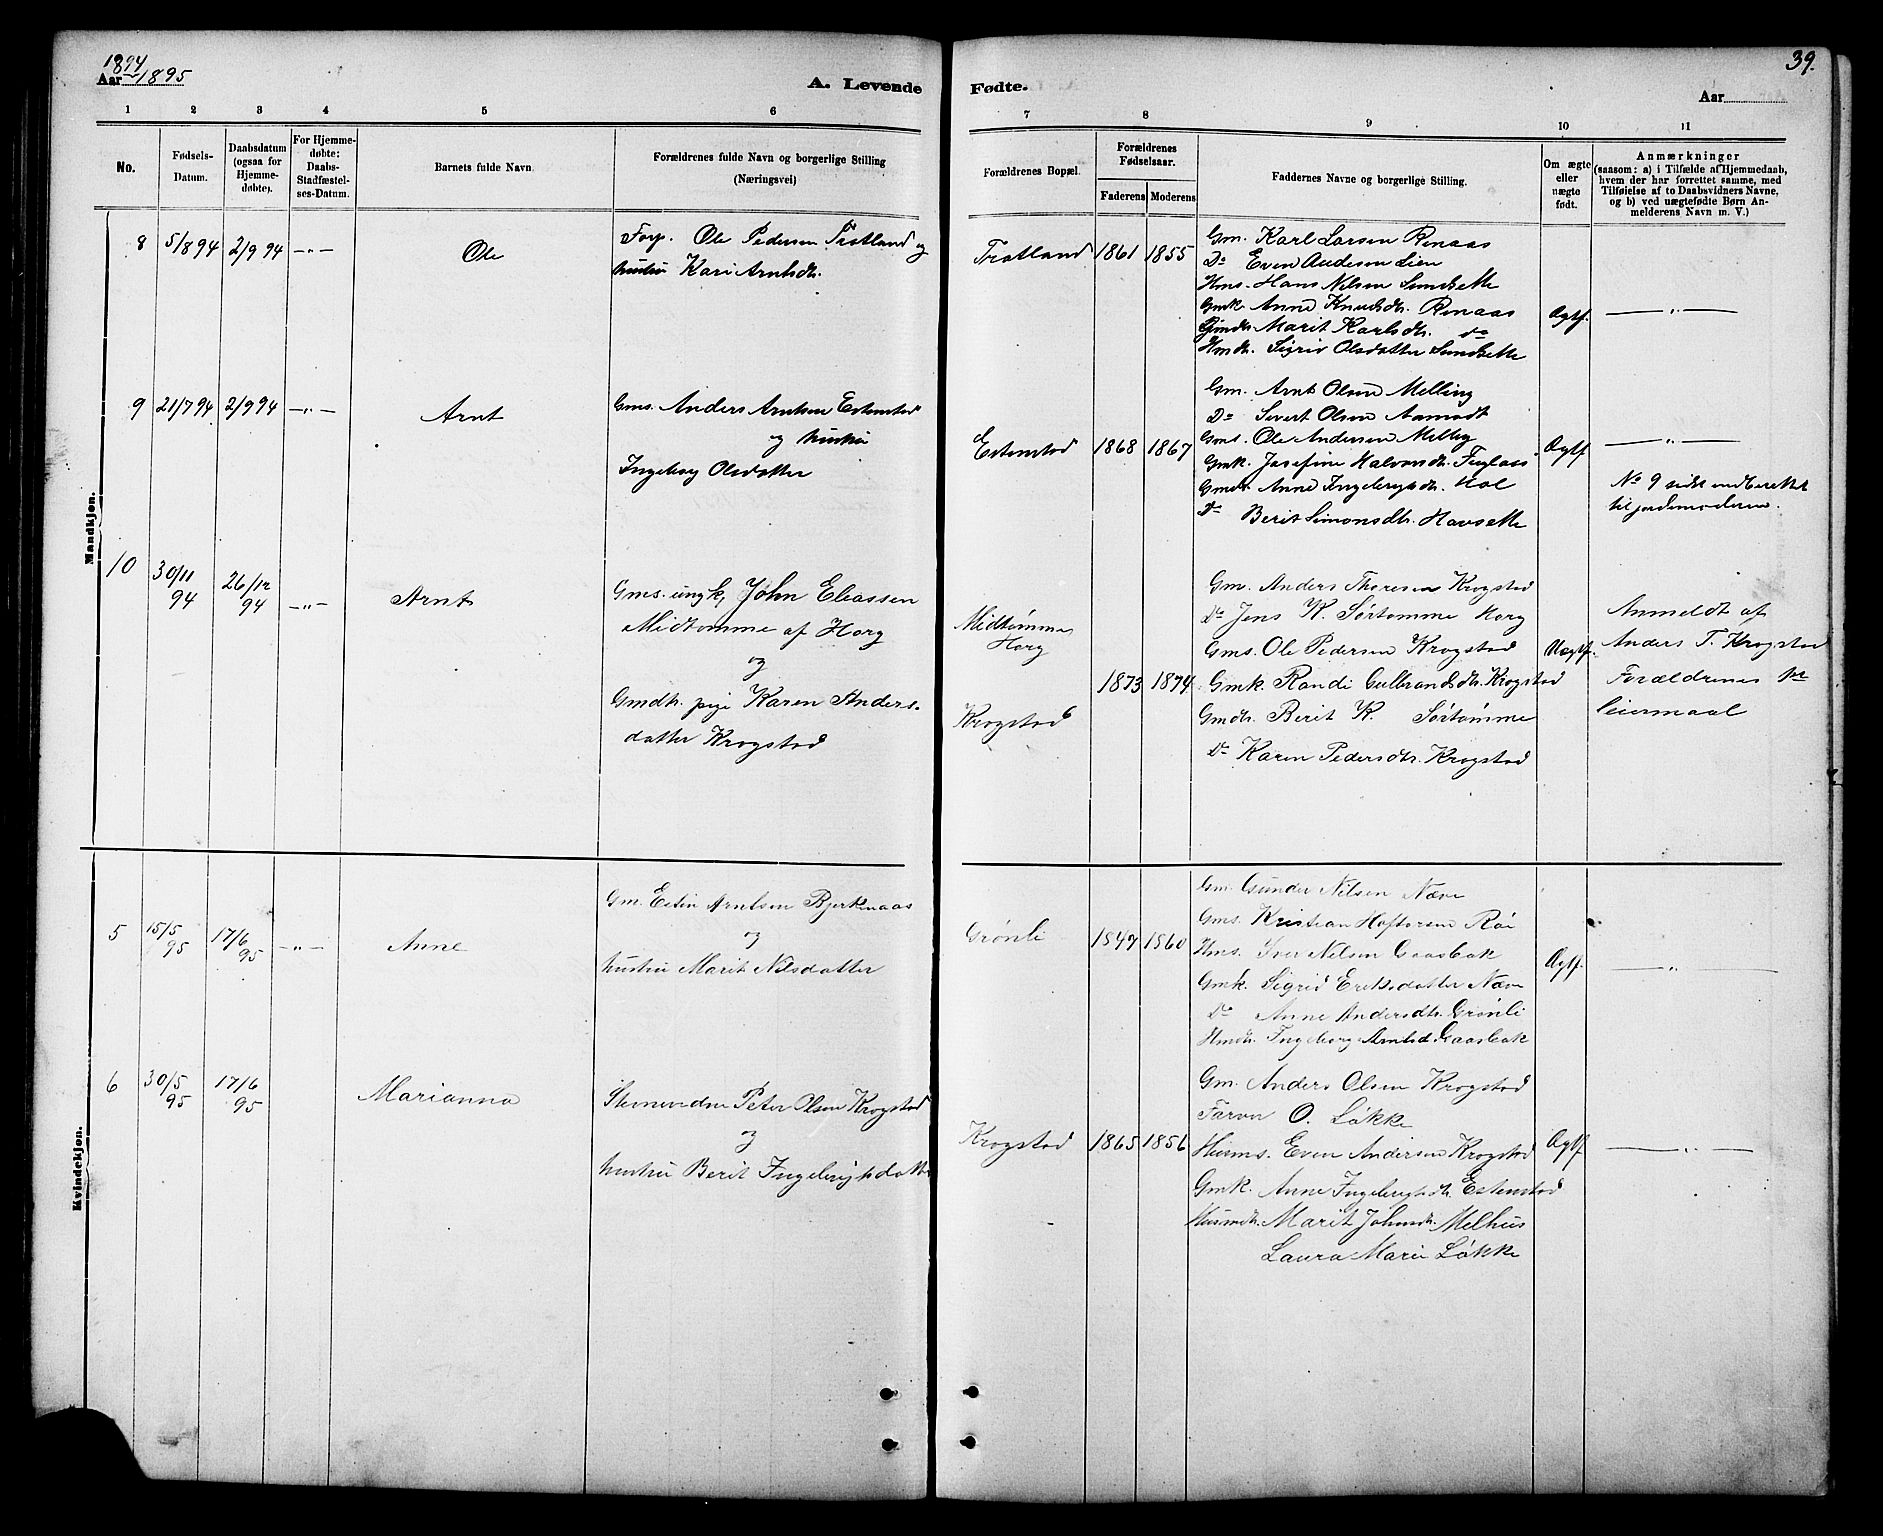 1894
Aar 1895
A. Levende
Fødte.
39.
Aar
1 2 3 4 5 6 7 8 9 10 11
No.
Fødsels-
Datum.
Daabsdatum
(ogsaa for
Hjemme-
døbte).
For Hjemme-
døbte:
Daabs-
Stadfæstel-
ses-Datum.
Barnets fulde Navn.
Forældrenes fulde Navn og borgerlige Stilling
(Næringsvei)
Forældrenes Bopæl.
Forældrenes
Fødselsaar.
Faderens Moderens
Faddernes Navne og borgerlige Stilling.
Om ægte
eller
uægte
født.
Anmærkninger
(saasom: a) i Tilfælde af Hjemmedaab,
hvem der har forrettet samme, med
Tilføielse af to Daabsvidners Navne,
og b) ved uægtefødte Børn An-
melderens Navn m. V.)
Mandkjøn.
8 5/8 94 2/9 94 —„— Ole
Forp. Ole Pedersen Trotland og
hustru Kari Arntsdtr.
Trotland 1861 1855
Gm. Karl Larsen Renaas
Do Even Andersen Lien
Hms. Hans Nilsen Sundsette
Gmk. Anne Knudsdtr. Renaas
Gmdtr. Marit Karlsdtr. do
Hmdtr. Sigrid Olsdatter Sundsette
Ægtf. —„—
9 21/7 94 2/9 94 —„— Arnt
Gms. Anders Arntsen Estenstad
og hustru
Ingeborg Olsdatter
Estenstad 1868 1867
Gm. Arnt Olsen Melling
Do Sivert Olsen Aamodt
Gms. Ole Andersen Melby
Gmk. Josefine Halvorsdtr. Fuglaas
Gmdtr. Anne Ingebrigtsdtr. Hol
Do Berit Simonsdtr. Havsette
Ægtf —„—
No 9 sidst indberettet
til jordemoderen.
10 30/11 94 26/12 94 —„— Arnt
Gms. ungk. John Eliassen
Midtømme af Horg
og
Gmdtr. pige Karen Anders-
datter Krogstad
Midtømme
Horg
Krogstad
1873 1874
Gm. Anders Thoresen Krogstad
Do Jens K. Sørtømme Horg
Gms. Ole Pedersen Krogstad
Gmk. Randi Gulbrandsdtr. Krogstad
Gmdtr. Berit K. Sørtømme
Do Karen Pedersdtr. Krogstad
Uægtf.
Anmeldt af
Anders T. Krogstad
Forældrenes 1ste
leiermaal
Kvindekjøn.
5 15/5 95 17/6 95 —„— Anne
Gm. Esten Arntsen Bjerkenaas
og
hustru Marit Nilsdatter
Grønli 1847 1860
Gm. Gunder Nilsen Næve
Gms. Kristian Haftorsen Røi
Hms. Iver Nilsen Gaasbak
Gmk. Sigrid Eriksdatter Næve
Do Anne Andersdtr. Grønli
Hmdtr. Ingeborg Arntsd. Gaasbak
Ægtf. —„—
6 30/5 95 17/6 95 Marianna
Skomager Peter Olsen Krogstad
og
hustru Berit Ingebrigtsdatter
Krogstad 1865 1856
Gm. Anders Olsen Krogstad
Farver O. Løkke
Husms. Even Andersen Krogstad
Gmk. Anne Ingebrigtsdtr. Estenstad
Husmdtr. Marit Johnsdtr. Melhus
Laura Marie Løkke
Ægtf —„—